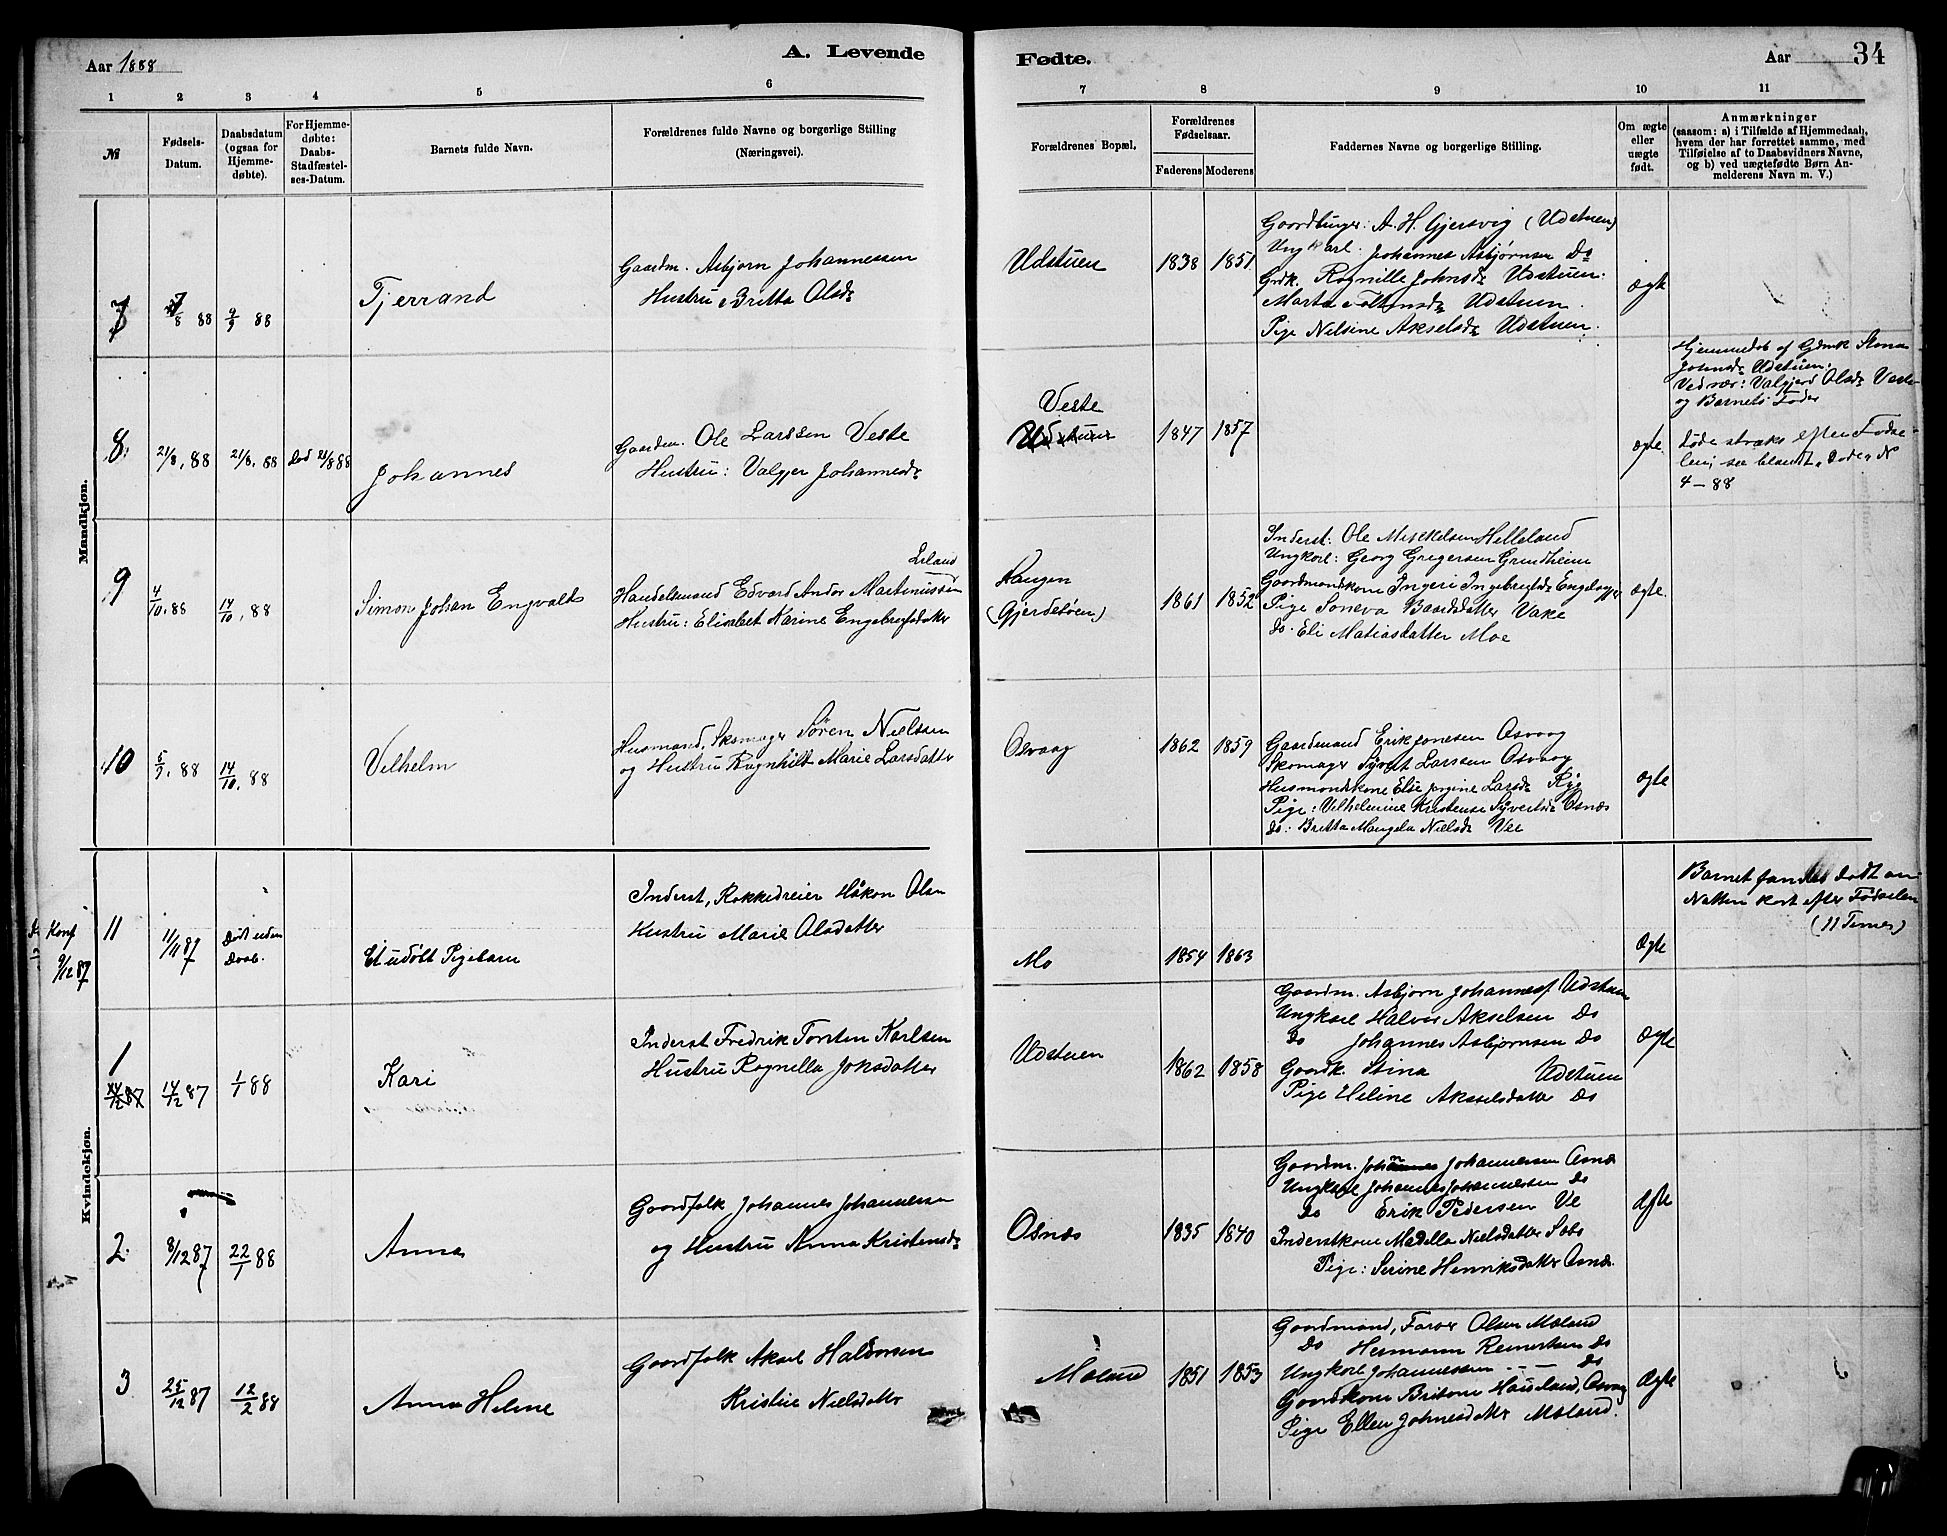 Aar 1888
A. Levende
Fødte.
Aar
34
1 2 3 4 5 6 7 8 9 10 11
№
Fødsels-
Datum.
Daabsdatum
(ogsaa for
Hjemme-
døbte).
For Hjemme-
døbte:
Daabs-
Stadfæstel-
ses-Datum.
Barnets fulde Navn.
Forældrenes fulde Navne og borgerlige Stilling
(Næringsvei).
Forældrenes Bopæl,
Forældrenes
Fødselsaar.
Faderens Moderens
Faddernes Navne og borgerlige Stilling.
Om ægte
eller
uægte
født.
Anmærkninger
(saasom: a) i Tilfælde af Hjemmedaab,
hvem der har forrettet samme, med
Tilføielse af to Daabsvidners Navne,
og b) ved uægtefødte Børn An-
melderens Navn m. V.)
Mandkjøn.
7
7/8 88
9/9 88
Tjerrand
Gaardm. Asbjørn Johannessen
Hustru Britta Olsd.
Udstuen
1838
1851
Gaardbruger: A. H. Gjersvig (Udstuen)
Ungkarl. Johannes Asbjørnsen Do
Gdk. Rognille Johnsd. Udstuen.
Marta Udstuen
Pige Nelsine Akselsd. Udstuen.
ægte
8.
21/8, 88
21/8, 88
Død 21/8 88
Johannes
Gaardm. Ole Larssen Veste
Hustru: Valgjer Johannesd.
Veste
Udstuen
1847
1857
ægte
Hjemmedøb af Gdmk
Johnsd. Udstuen.
Vedvær: Valgjerd Olsd. Veste
og Barnets Fader
Døde straks efter Fødse-
len, se blandt "Døde" N
4 – 88
9
4/10, 88
14/10, 88
Simon Johan Engvald
Leland
Handelsmand Edvard Andor Martinussen
Hustru: Elisabet Karine Engebretsdatter
Haugen
(Gjerdetøen)
1861
1852
Inderst: Ole Mikkelsen Helleland
Ungkarl: Georg Gregersen Grindheim
Gaardmandskone Ingeri
Pige Soneva Baardsdatter Vake
do. Eli Matiasdatter Moe
ægte.
10
5/9, 88
14/10, 88
Vilhelm
Husmand, Skomager Søren Nielssen
og Hustru Ragnhilt Marie Larsdatter
Osvaag
1862
1859
Gaardmand Erik Jonesen Osvaag
Skomager Syvert Larssen Osvaag
Husmandskone Elie Jorgine Larsd. Rye
Pige: Vilhelmine Kristense Syvertsd. Osnæs
do: Britta Mangela Nielsd. Vee
ægte
Konf
9/12 87
11
11/11 87
Død uden
Daab.
Et udøbt Pigebarn
Inderst, Rokkedreier Håkon Olsen
Hustru Marie Olsdatter
Mo
1854
1863
Ægte
Barnet fandtes dødt om
Natten kort efter Fødselen
(11 Timer)
Kvindekjøn.
1
14/12 87
1/1 88
Kari
Inderst Fredrik Torsten Karlsen
Hustru Rognella Johsdatter
Udstuen
1862
1858
Gaardm. Asbjørn Johannesf Udstuen
Ungkarl Halvor Akselsen Do
Do Johannes Asbjørnsen Do
Gaardk. Stina Udstuen
Pige Heline Akselsdatter Do
Ægte
2.
8/12 87
22/1 88
Anna
Gaardfolk Johannes Johannesen
og Hustru Anna Kristensd.
Osnæs
1835
1840
Gaardm. Johannesen Osnæs
Ungkarl Johannes Johannesen do
Do Erik Pedersen Ve
Inderstkone Madella Nielsdatter Sæbø
Pige: Serine Henriksdatter Osnæs.
Ægte
3
25/12 87
12/2 88
Anna Heline
Gaardfolk Aksel Haldorsen
Kristie Nielsdatter
Moland
1851
1853
Gaardmand, Olsen Moland
Do Hermann Reinertsen Do
Ungkarl Johannessen Do
Gaardkone Osvaag
Pige Ellen Johnesdatter Moland.
Ægte